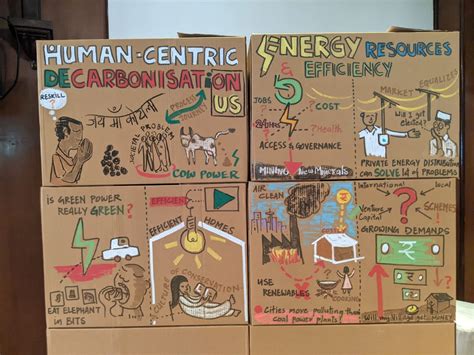 HUMAN-CENTRIC
DECARBONISATION
RESKILL
?
जय माँ कोयला
SOCIETAL PROBLEM
PROCESS
JOURNEY
US
COW POWER
ENERGY RESOURCES
& EFFICIENCY
JOBS
?COST
?Health
ACCESS & GOVERNANCE
MINING New Minerals
MARKET EQUALIZES
Will I get
elected?
PRIVATE ENERGY DISTRIBUTION
CAN SOLVE lot of PROBLEMS
IS GREEN POWER
REALLY GREEN?
EAT ELEPHANT
in BITS
EFFICIENT
EFFICIENT HOMES
CULTURE of CONSERVATION
AIR
CLEAN
USE
RENEWABLES
COOKING
Cities more polluting than
coal power plants!
International
local
Venture
Capital
?
SCHEMES
GROWING DEMANDS
₹
₹
Will my village get MONEY